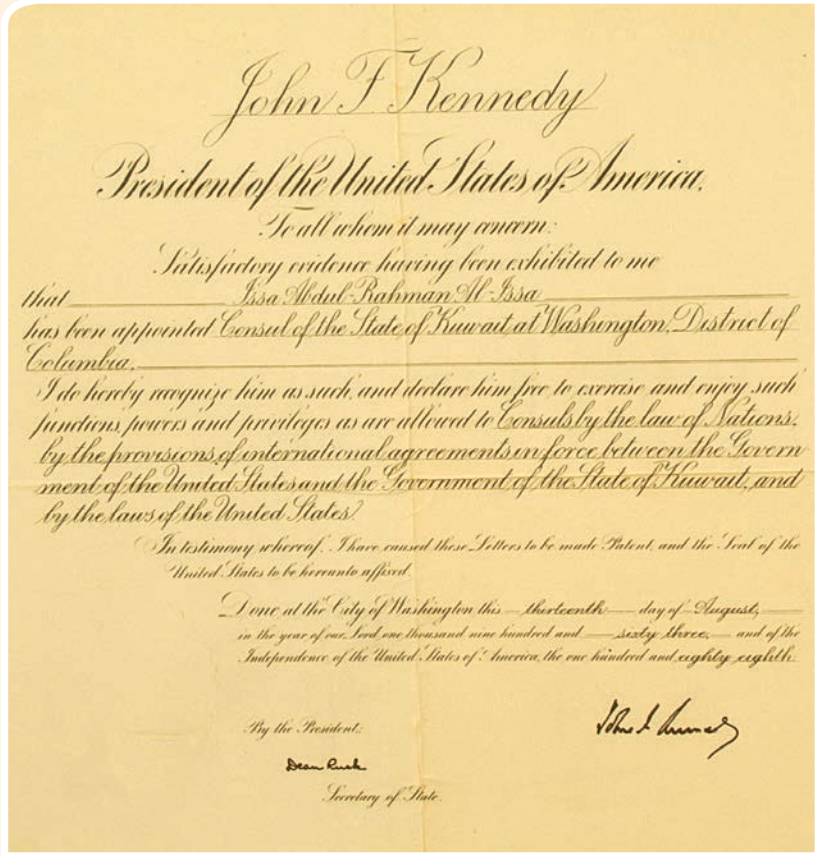 John F Kennedy
President of the United States of America.
To all whom it may concern:
Satisfactory evidence having been exhibited to me
that Issa Abdul-Rahman Al-Issa
has been appointed Consul of the State of Kuwait, at Washington, District of
Columbia,
I do hereby recognize him as such, and declare him free to exercise and enjoy such
functions, powers and privileges as are allowed to Consuls by the law of Nations,
by the provisions of international agreements in force between the Govern
ment of the United States and the Government of the State of Kuwait, and
by the laws of the United States.
In testimony whereof, I have caused these Letters to be made Patent, and the Seal of the
United States to be hereunto affixed.
Done at the City of Washington this thirteenth day of August,
in the year of our Lord one thousand nine hundred and sixty three, and of the
Independence of the United States of America, the one hundred and eighty eighth.
John F. Kennedy
By the President:
Dean Rusk
Secretary of State.